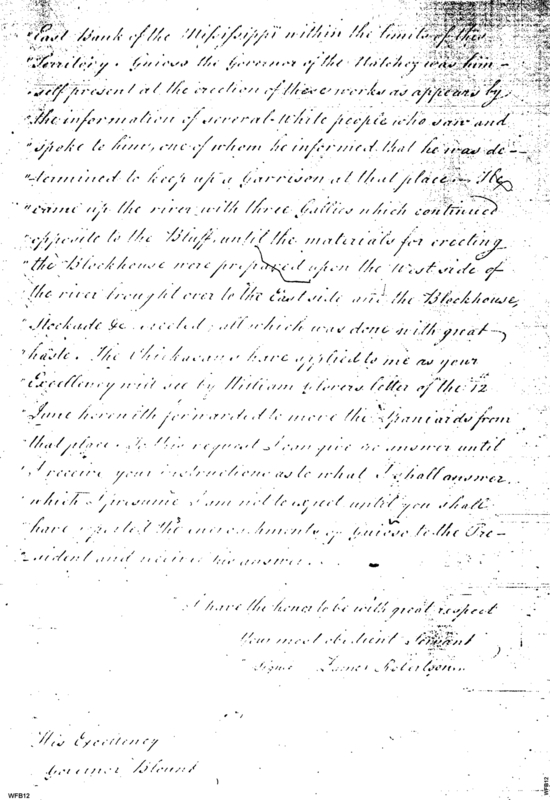 "East Bank of the Mississippi within the limits of this
"Territory. Guioso the Governor of the Natchez was him-
"self present at the erection of these works as appears by
"the information of several White people who saw and
"spoke to him, one of whom he informed that he was de-
"termined to keep up a Garrison at that place - He
"came up the river with three Gallies which continued
"opposite to the Bluff until the materials for erecting
"the Blockhouse were prepared upon the West side of
"the river brought over to the East side and the Blockhouse,
"Stockade &c erected, all which was done with great
"haste. The Chickasaws have applied to me as your
"Excellency will see by William Glovers letter of the 12
"June herewith forwarded to move the Spaniards from
"that place. To this request I can give no answer until
"I receive your instructions as to what I shall answer
"which I presume I am not to expect until you shall
"have reported the encroachments of Guioso to the Pre-
"sident and receive his answer...
I have the honor to be with great respect
Your most obedient Servant
Signed James Robertson
His Excellency
Governor Blount
WFB12
WFB12